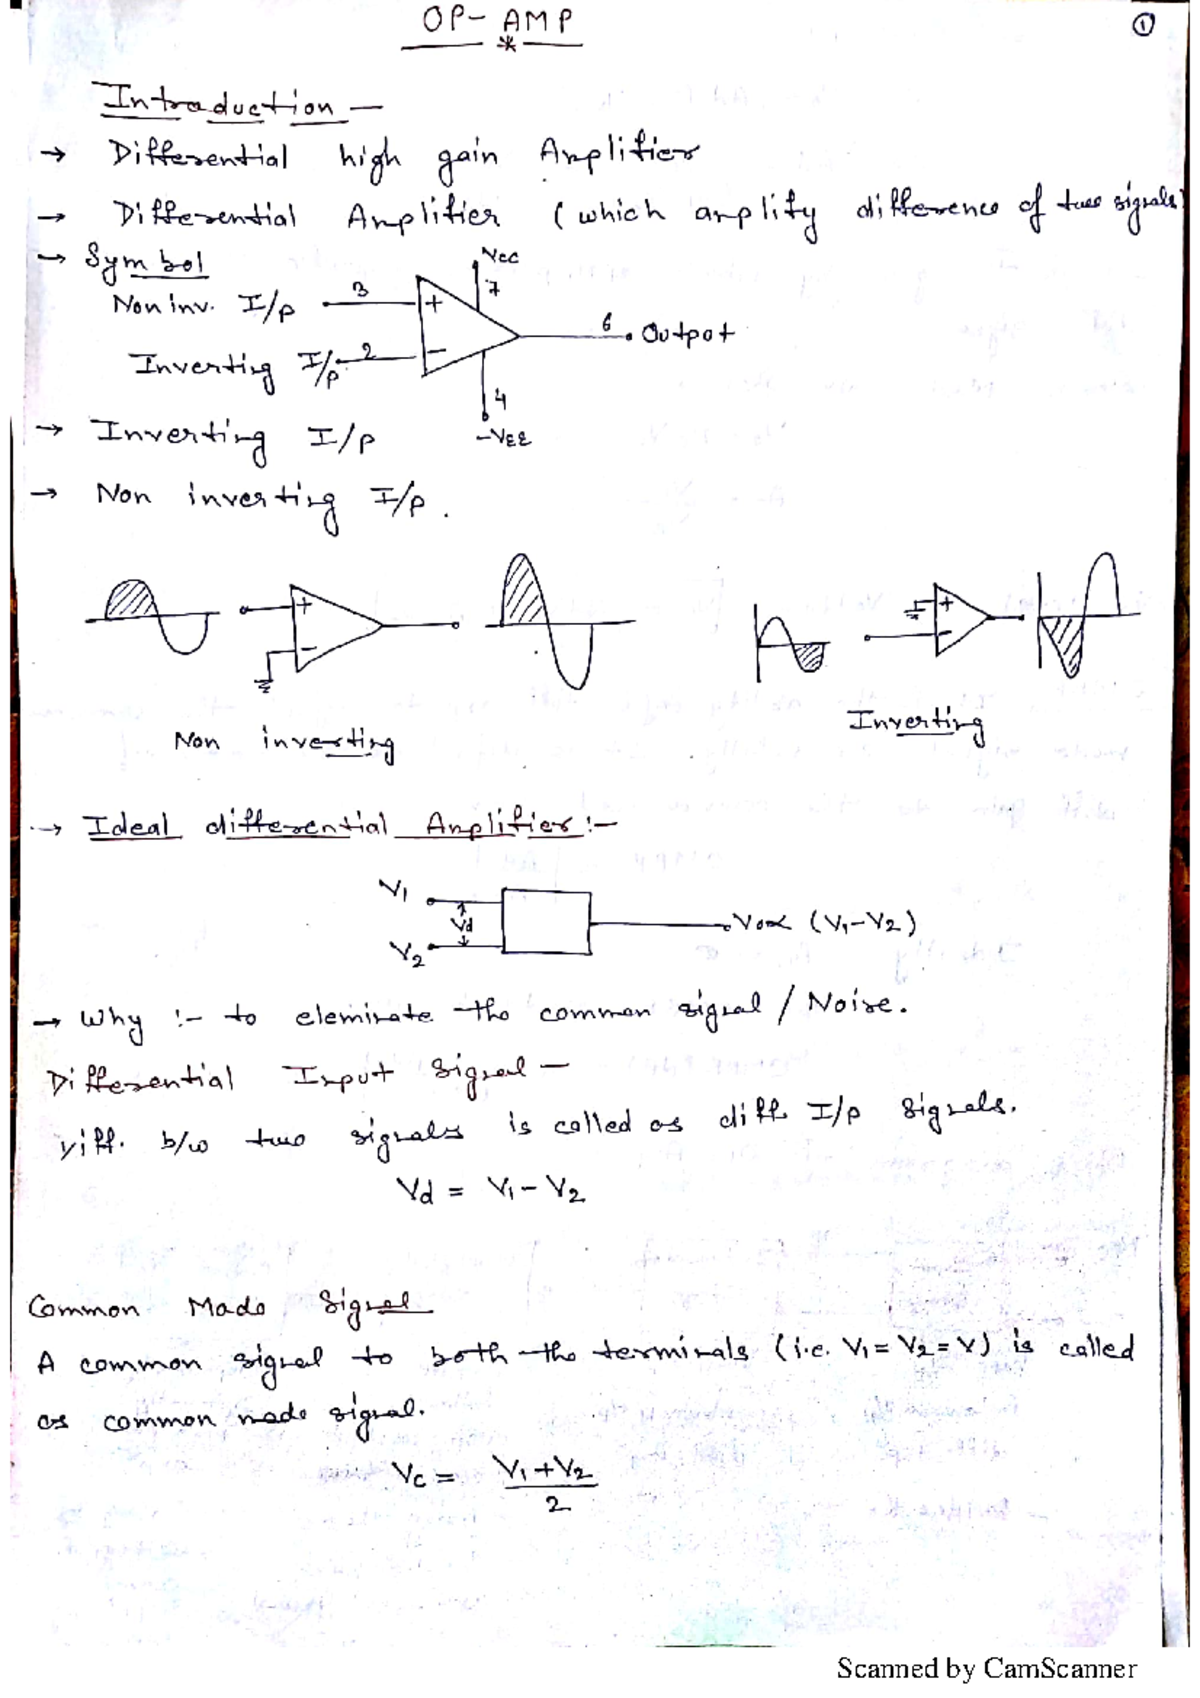 OP-AMP
①
Introduction -
→ Differential high gain Amplifier
→ Differential Amplifier (which amplify difference of two signals)
→ Symbol
Vcc
7
Non inv. I/p 3 +
6 Output
Inverting I/p 2 -
4
-VEE
→ Inverting I/p
→ Non inverting I/p.
+
-
+
-
Non inverting
Inverting
→ Ideal differential Amplifier :-
V1
Vd
Vo∝ (V1-V2)
V2
→ Why :- to eleminate the common signal / Noise.
Differential Input signal -
Diff. b/w two signals is called as diff. I/p signals.
Vd = V1 - V2
Common Mode Signal
A common signal to both the terminals (i.e. V1 = V2 = V) is called
as common mode signal.
Vc = V1 + V2
2
Scanned by CamScanner